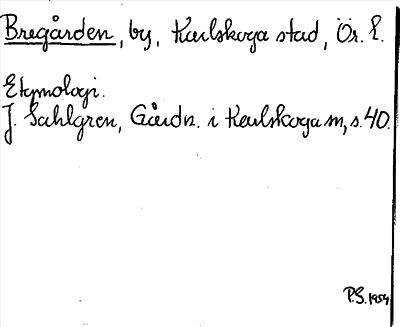 Bregården, by, Karlskoga stad, Ör. l.
Etymologi.
J. Sahlgren, Gårdn. i Karlskoga m, s. 40.
P.S. 1954